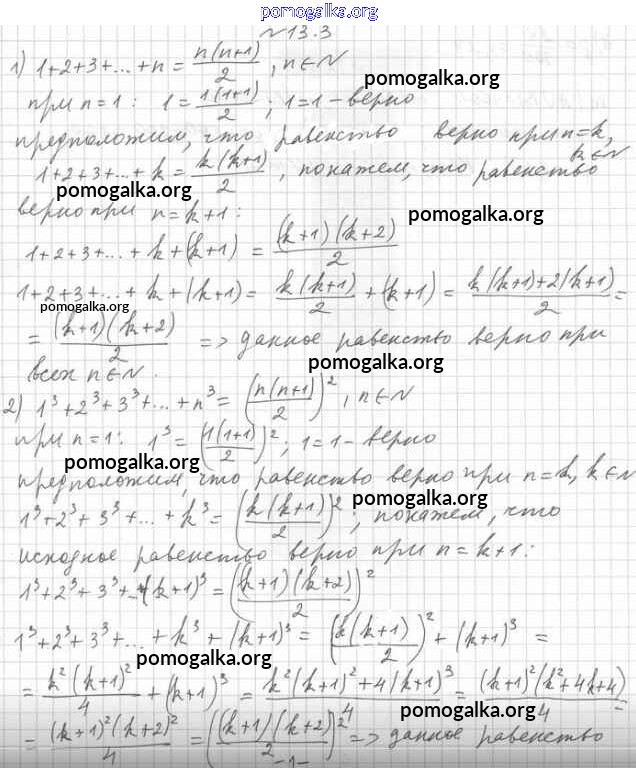 pomogalka.org
№13.3
1) 1+2+3+...+n = n(n+1)/2, n∈N
pomogalka.org
при n=1: 1 = 1(1+1)/2; 1=1 - верно
предположим, что равенство верно при n=k,
k∈N
1+2+3+...+k = k(k+1)/2, покажем, что равенство
pomogalka.org
верно при n=k+1:
pomogalka.org
1+2+3+...+k+(k+1) = (k+1)(k+2)/2
1+2+3+...+k+(k+1) = k(k+1)/2 + (k+1) = k(k+1)+2(k+1)/2 =
pomogalka.org
= (k+1)(k+2)/2 => данное равенство верно при
pomogalka.org
всех n∈N.
2) 1³+2³+3³+...+n³ = (n(n+1)/2)², n∈N
при n=1: 1³ = (1(1+1)/2)²; 1=1 - верно
pomogalka.org
предположим, что равенство верно при n=k, k∈N
pomogalka.org
1³+2³+3³+...+k³ = (k(k+1)/2)², покажем, что
исходное равенство верно при n=k+1:
1³+2³+3³+...+(k+1)³ = ((k+1)(k+2)/2)²
1³+2³+3³+...+k³+(k+1)³ = (k(k+1)/2)² + (k+1)³ =
pomogalka.org
= k²(k+1)²/4 + (k+1)³ = k²(k+1)²+4(k+1)³/4 = (k+1)²(k²+4k+4)/4 =
pomogalka.org
= (k+1)²(k+2)²/4 = ((k+1)(k+2)/2)² => данное равенство
-1-